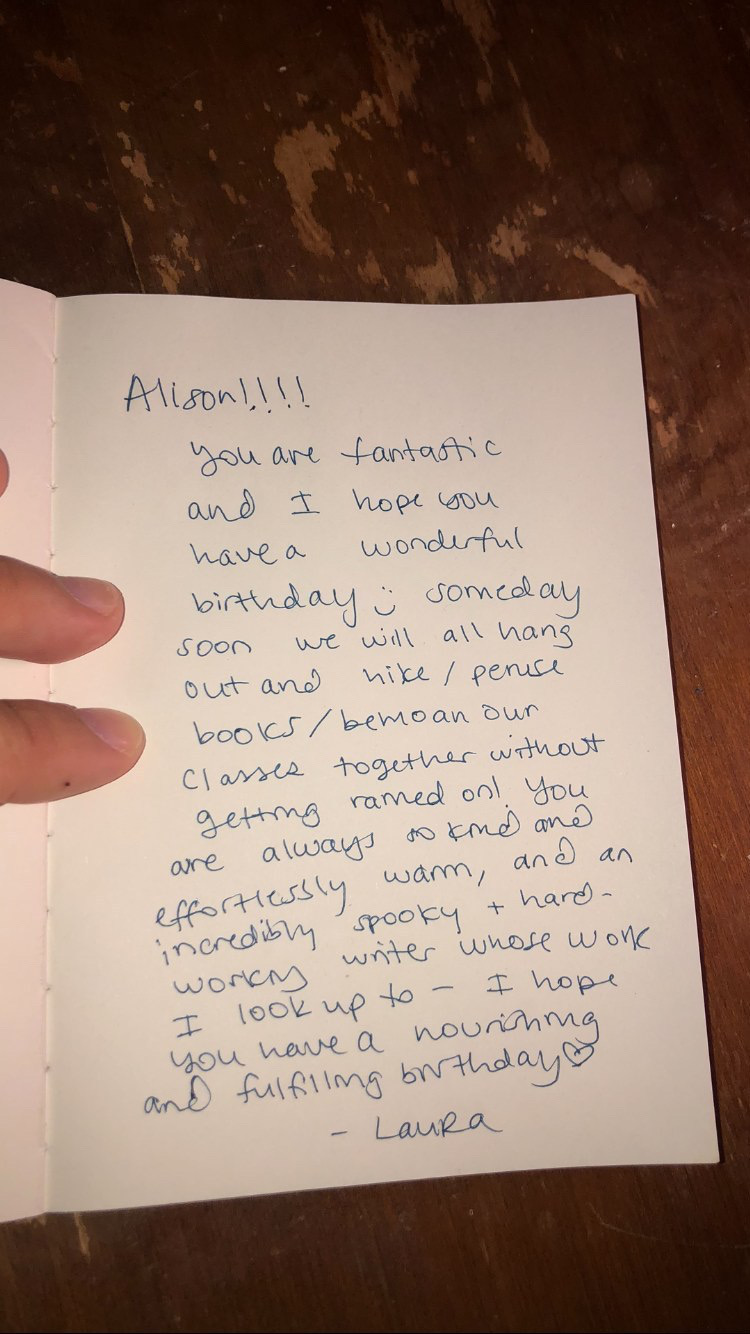 Alison!!!!
you are fantastic
and I hope you
have a wonderful
birthday :) someday
soon we will all hang
out and hike / peruse
books / bemoan our
classes together without
getting rained on! You
are always so kind and
effortlessly warm, and an
incredibly spooky + hard-
working writer whose work
I look up to — I hope
you have a nourishing
and fulfilling birthday ♡
- Laura